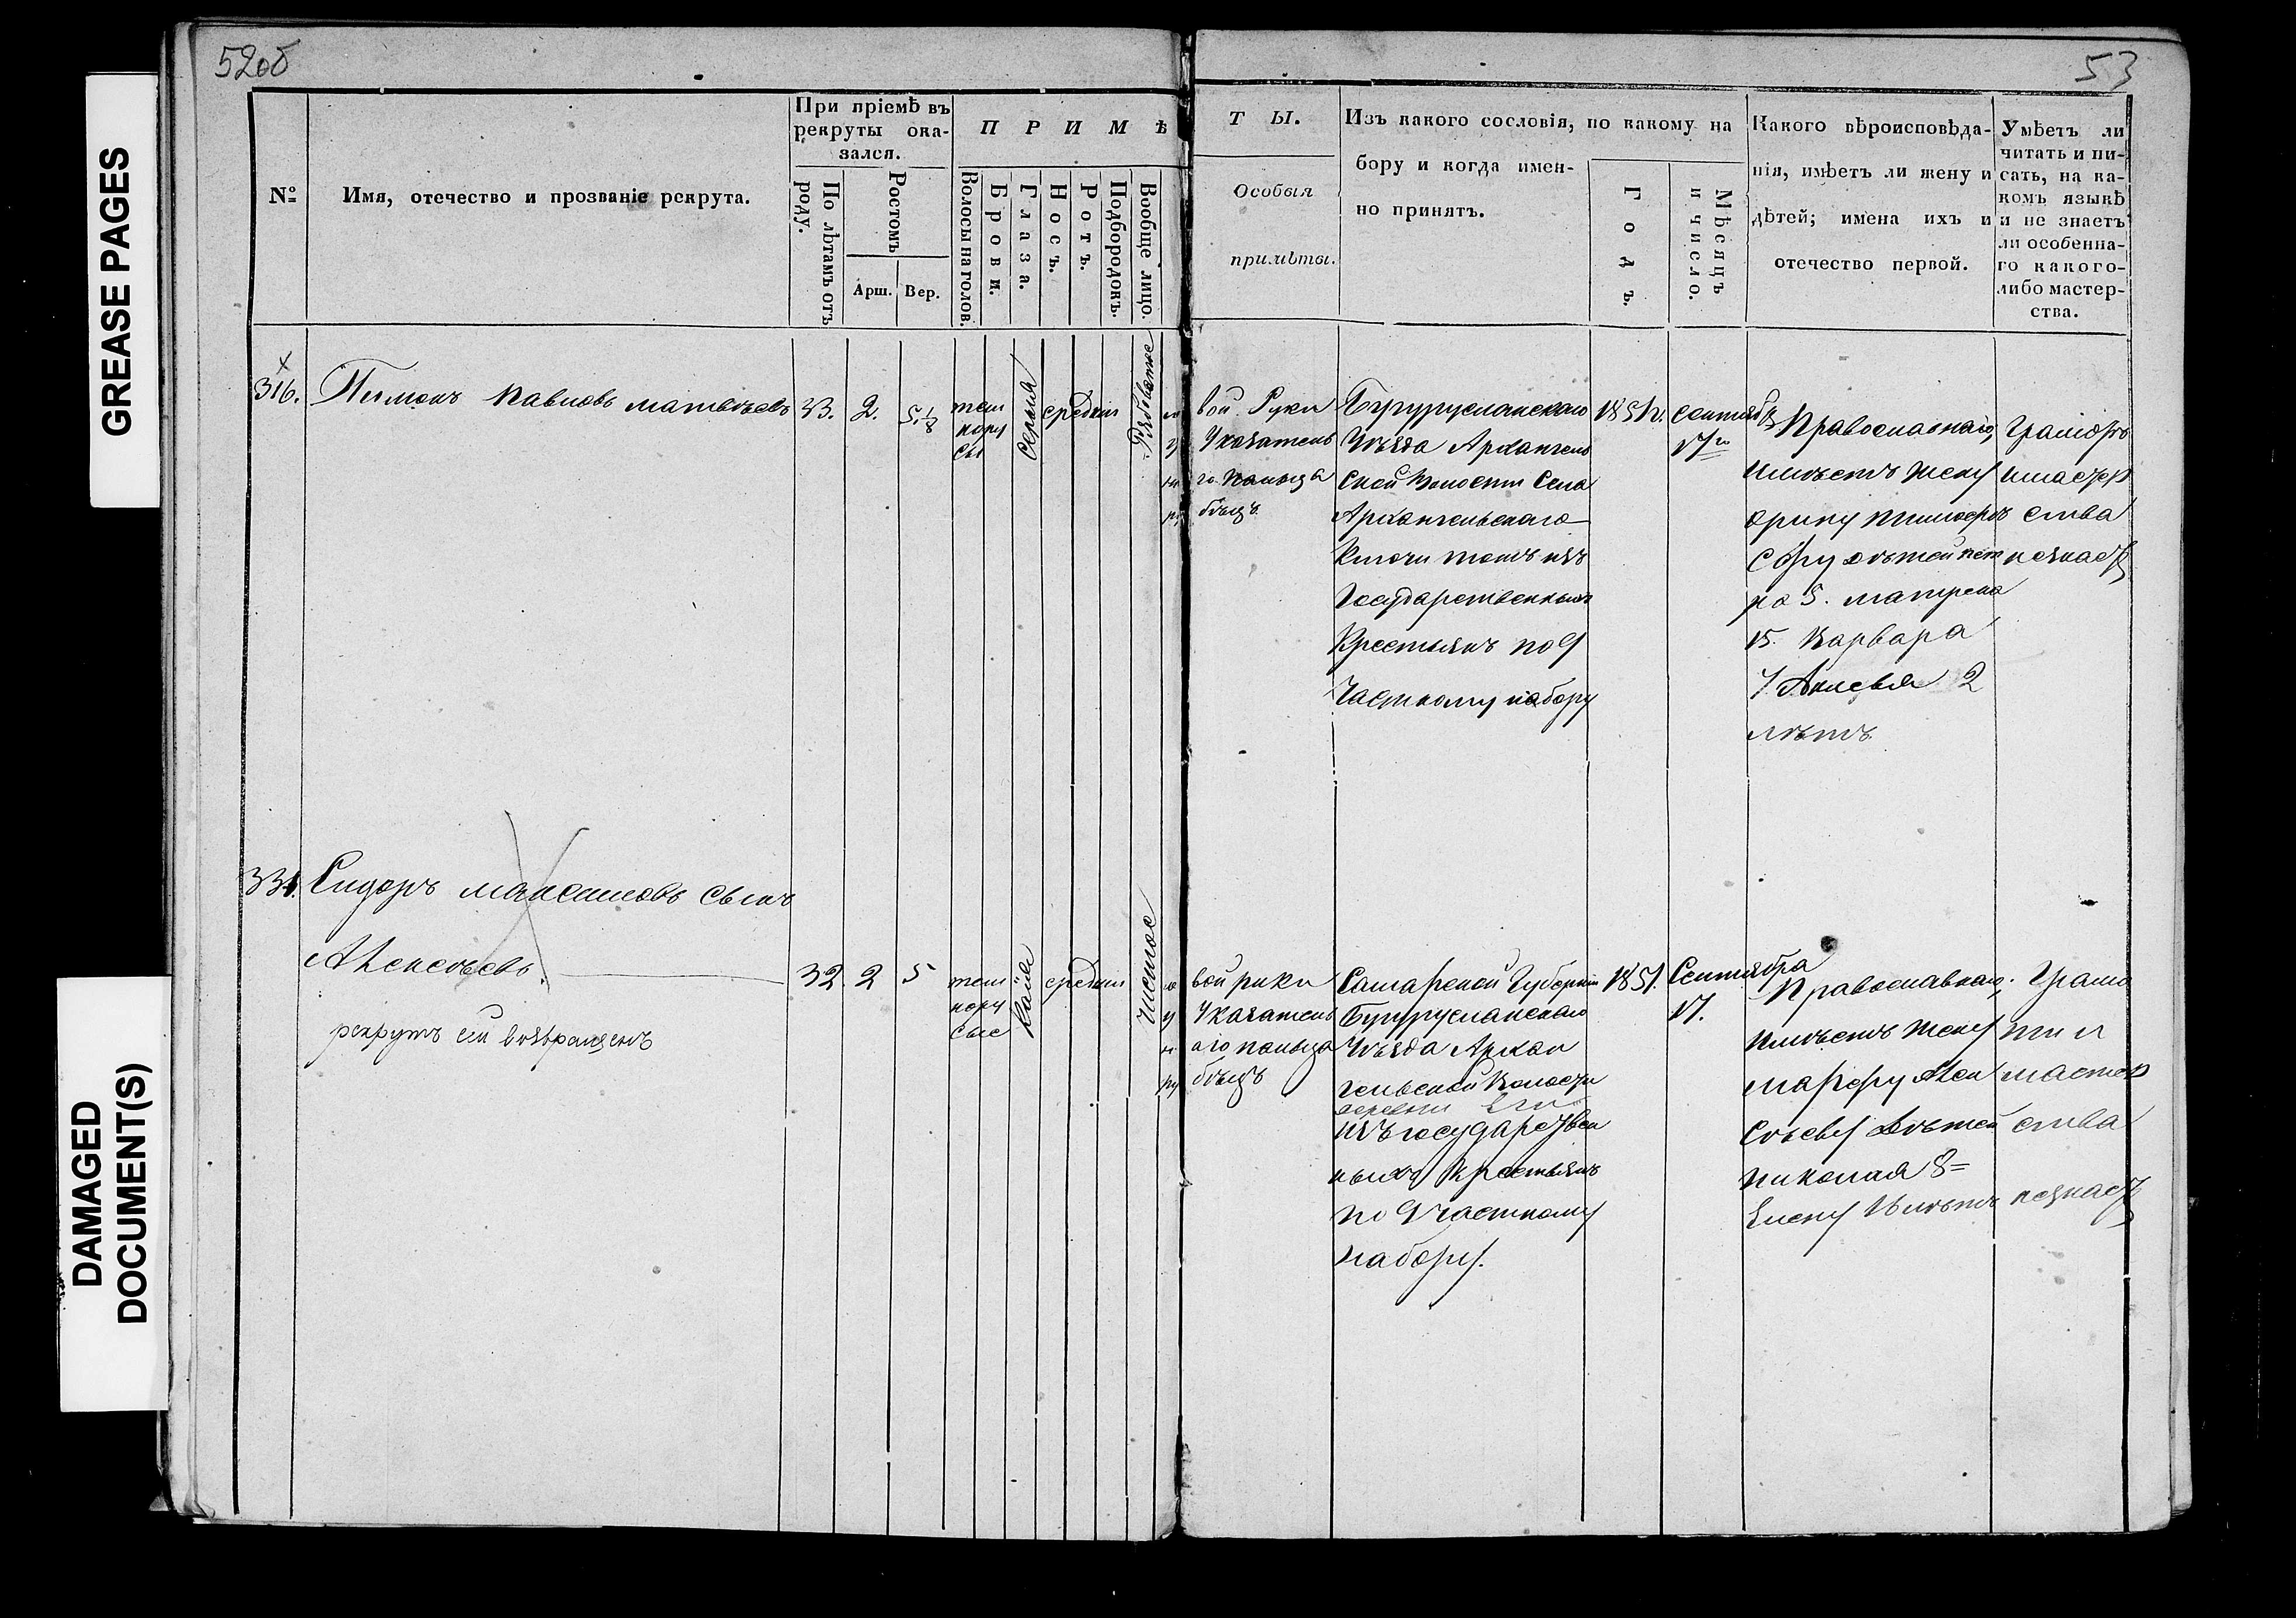 GREASE PAGES
DAMAGED
DOCUMENT(S)
52об
53
№
Имя, отечество и прозваніе рекрута.
При пріемѣ въ
рекруты ока-
зался.
По лѣтамъ отъ
роду.
Ростомъ
Арш.
Вер.
ПРИМѢ
Волосы на голов.
Брови.
Глаза.
Носъ.
Ротъ.
Подбородокъ.
Вообще лицо.
ТЫ.
Особыя
примѣты.
Изъ какого сословія, по какому на
бору и когда имен-
но принятъ.
Годъ.
Мѣсяцъ
и число.
Какого вѣроисповѣда-
нія, имѣетъ ли жену и
дѣтей; имена ихъ и
отечество первой.
Умѣетъ ли
читать и пи-
сать, на ка-
комъ языкѣ
и не знаетъ
ли особенна-
го какого-
либо мастер-
ства.
316.
Пимонъ Павловъ Матвѣевъ
33.
2.
5 1/8
тем
нору
сы
Серыя
средніи
Рябоватое
вой Руки
Указатель
го пальца
Бугурусланскаго
Уѣзда Архангель
ской Волости Села
Архангельскаго
Ключи тожъ изъ
Государственныхъ
Крестьянъ по У
частному набору
сентября
17го
Православнаго,
имѣетъ жену
дѣтей пет
ра 5. Матрена
15. Варвара
7. 2
лѣтъ
Грамотѣ
имастер
ства
незнаетъ
331.
Сидоръ Максимовъ сынъ
Алексѣевъ.
рекрутъ сей возвращенъ
32
2
5
тем
нору
сые
Каріе
средніи
Чистое
вой руки
Указатель
аго пальца
Самарской Губерніи
Бугурусланскаго
Уѣзда Архан
гельской Волости
деревни
изъ государствен
ныхъ Крестьянъ
по Участному
набору.
1851.
Сентября
17.
Православнаго,
имѣетъ жену
Марфу Алек
сѣеву дѣтей
Николая 8=
Елену лѣтъ
Грамо
ти и
мастер
ства
незнаетъ